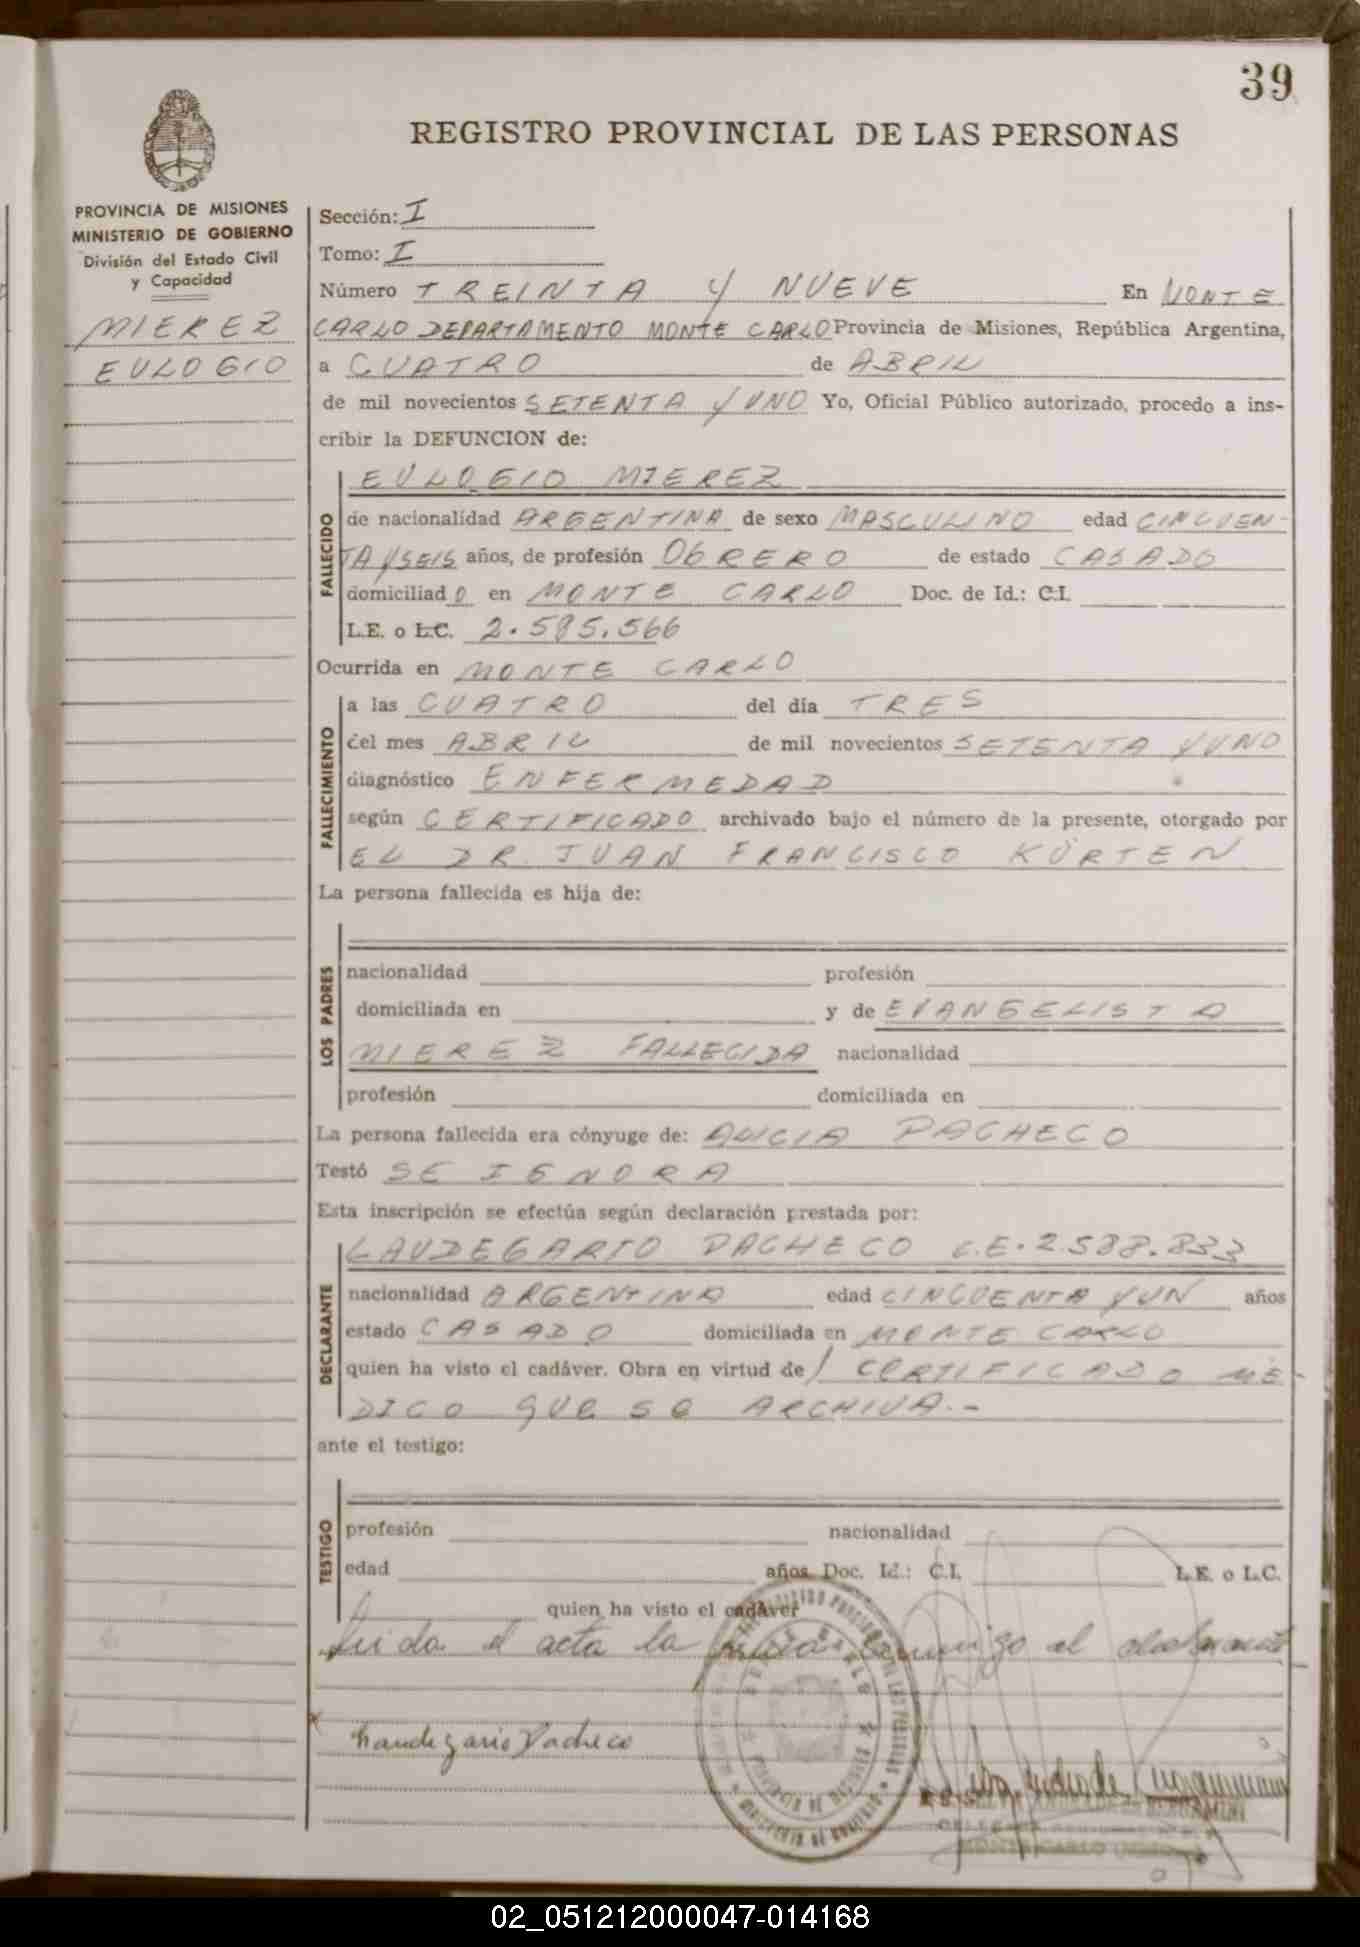 39
REGISTRO PROVINCIAL DE LAS PERSONAS
PROVINCIA DE MISIONES
MINISTERIO DE GOBIERNO
División del Estado Civil
y Capacidad
MIEREZ
EULOGIO
Sección: I
Tomo: I
Número TREINTA Y NUEVE En MONTE
CARLO DEPARTAMENTO MONTE CARLO Provincia de Misiones, República Argentina,
a CUATRO de ABRIL
de mil novecientos SETENTA Y UNO Yo, Oficial Público autorizado, procedo a ins-
cribir la DEFUNCION de:
FALLECIDO
EULOGIO MIEREZ
de nacionalidad ARGENTINA de sexo MASCULINO edad CINCUEN-
TA Y SEIS años, de profesión ObRERO de estado CASADO
domiciliado en MONTE CARLO Doc. de Id.: C.I.
L.E. o L.C. 2.585.566
Ocurrida en MONTE CARLO
FALLECIMIENTO
a las CUATRO del día TRES
del mes ABRIL de mil novecientos SETENTA Y UNO
diagnóstico ENFERMEDAD
según CERTIFICADO archivado bajo el número de la presente, otorgado por
EL DR. JUAN FRANCISCO KÜRTEN
La persona fallecida es hija de:
LOS PADRES
nacionalidad profesión
domiciliada en y de EVANGELISTA
MIEREZ FALLECIDA nacionalidad
profesión domiciliada en
La persona fallecida era cónyuge de: ALICIA PACHECO
Testó SE IGNORA
Esta inscripción se efectúa según declaración prestada por:
DECLARANTE
LAUDEGARIO PACHECO L.E. 2.588.833
nacionalidad ARGENTINA edad CINCUENTA Y UN años
estado CASADO domiciliada en MONTE CARLO
quien ha visto el cadáver. Obra en virtud de / CERTIFICADO MÉ-
DICO QUE SE ARCHIVA.-
ante el testigo:
TESTIGO
profesión nacionalidad
edad años. Doc. Id.: C.I. L.E. o L.C.
quien ha visto el cadáver
Leida el acta la firma conmigo el declarante
Laudegario Pacheco
PROVINCIA DE MISIONES
MINISTERIO DE GOBIERNO
02_051212000047-014168